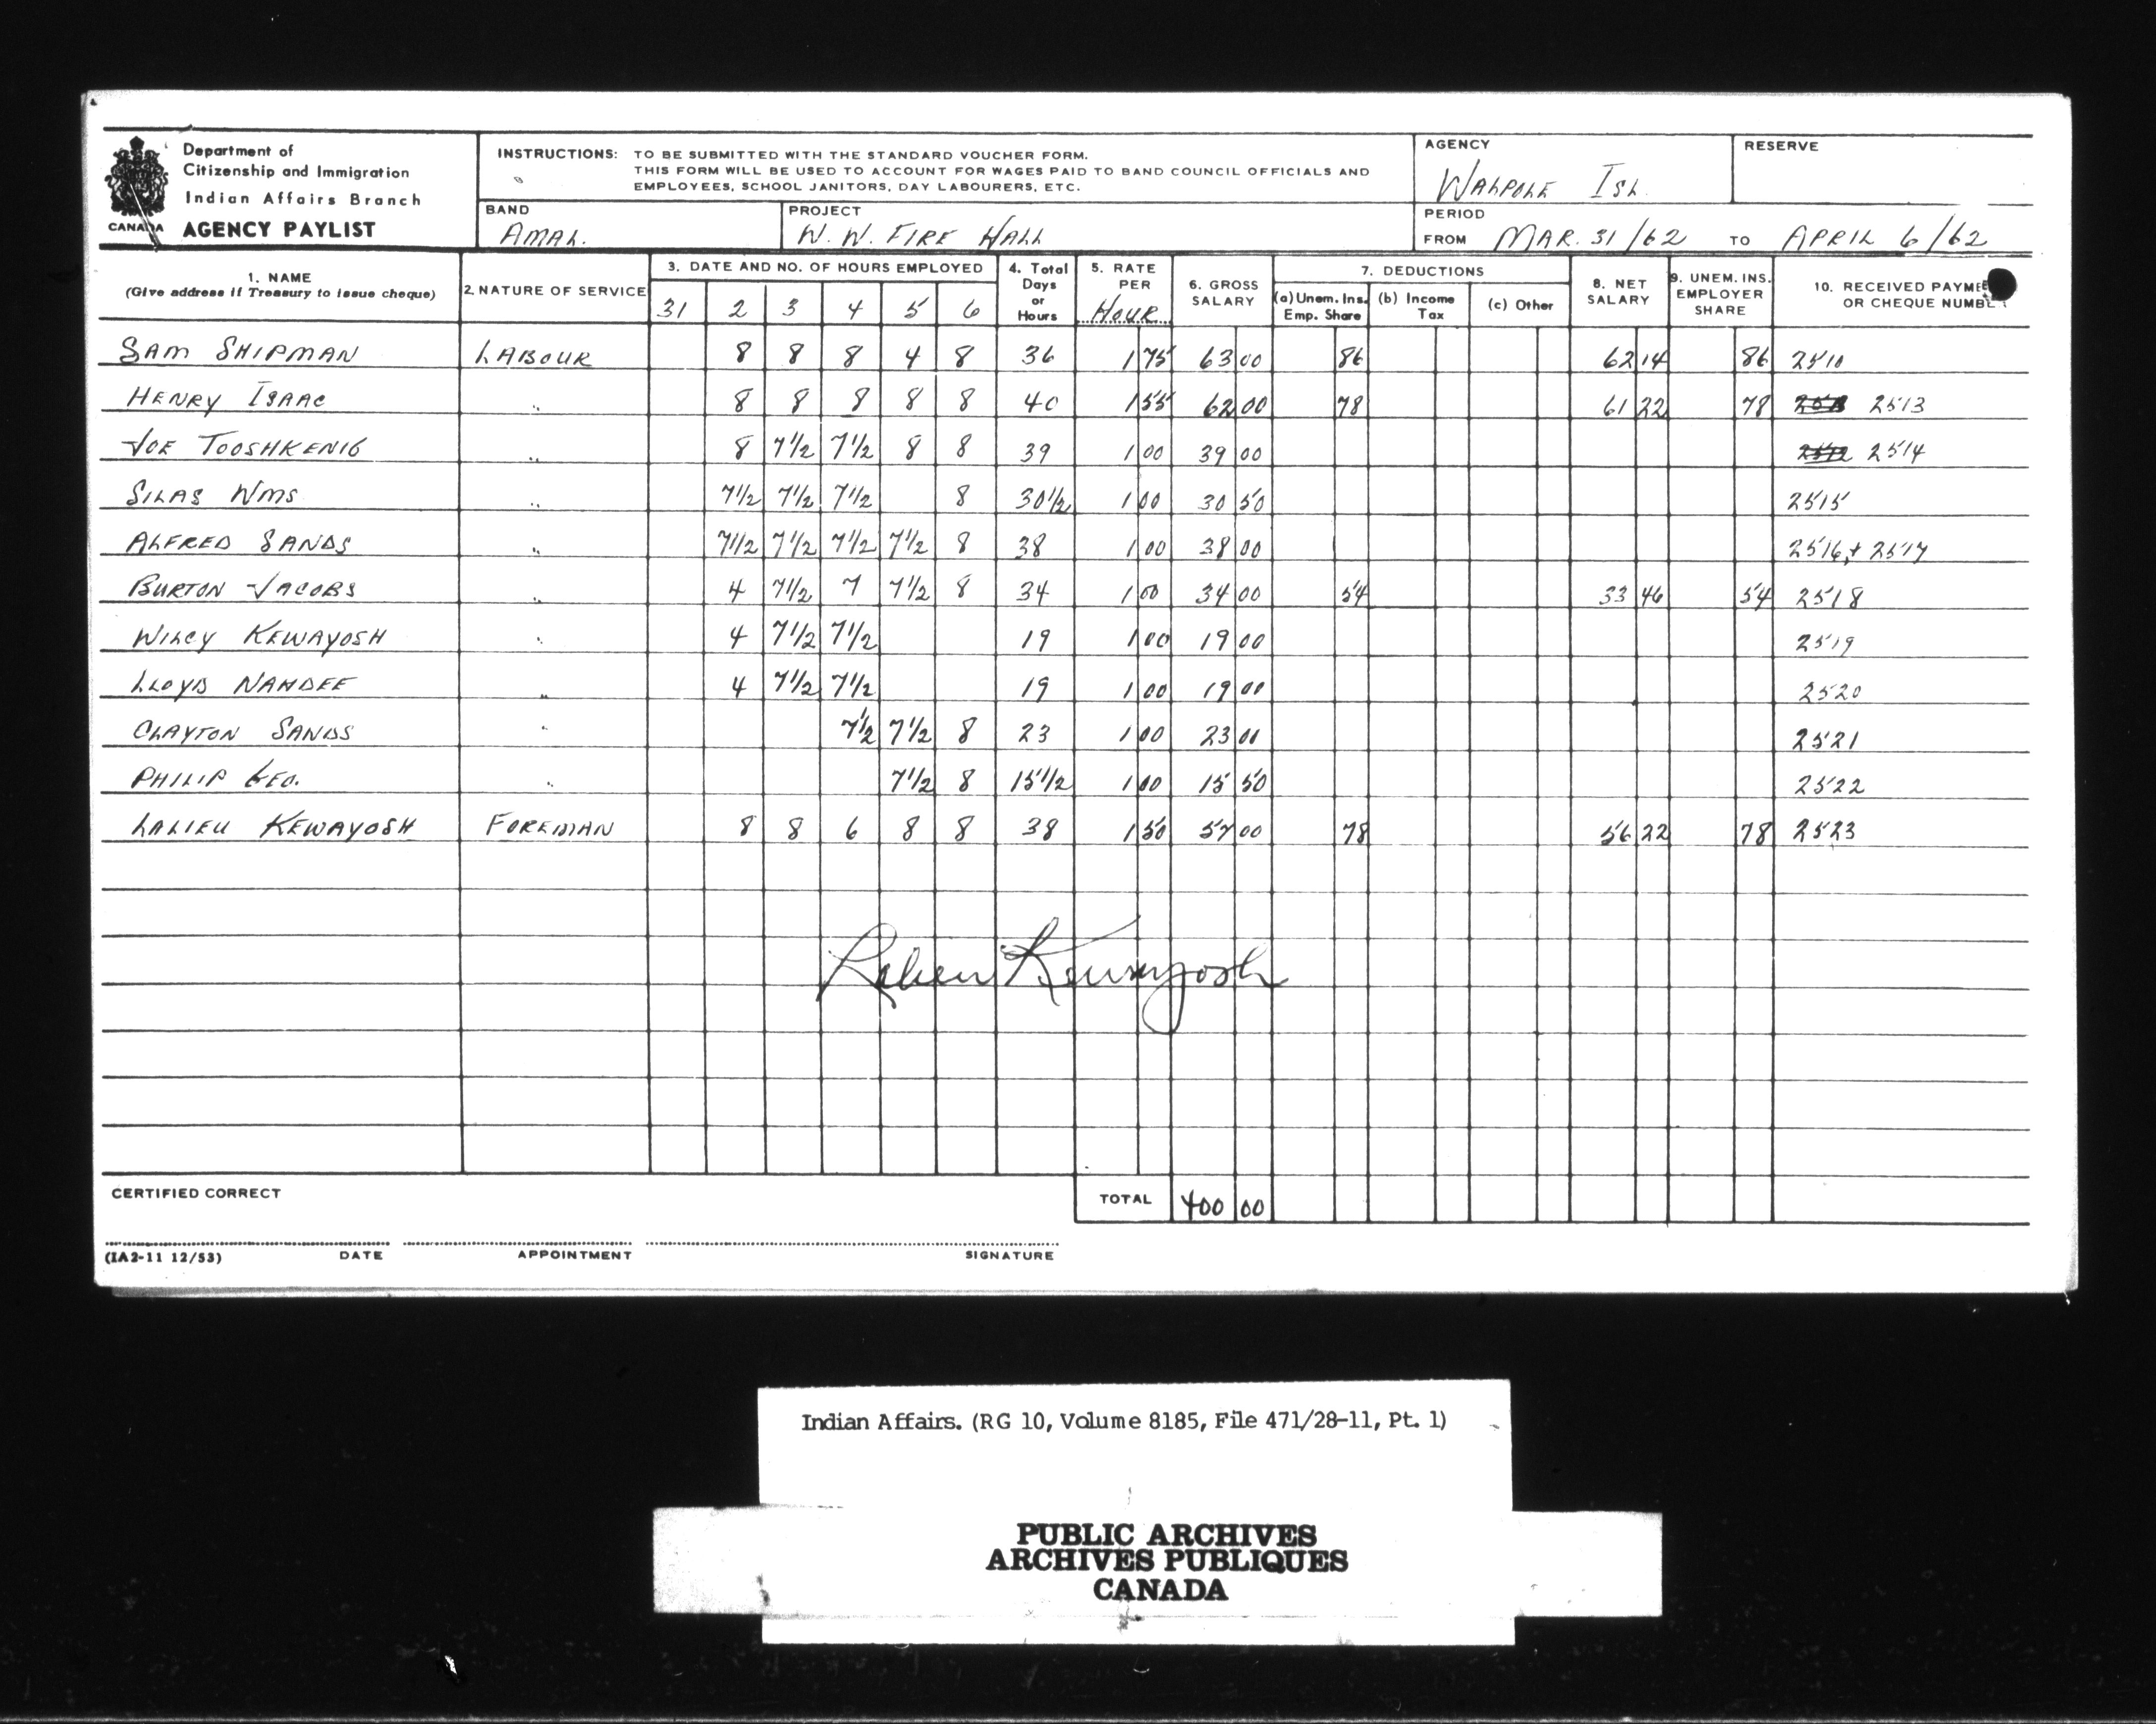 Department of
Citizenship and Immigration
Indian Affairs Branch
CANADA AGENCY PAYLIST
INSTRUCTIONS: TO BE SUBMITTED WITH THE STANDARD VOUCHER FORM.
THIS FORM WILL BE USED TO ACCOUNT FOR WAGES PAID TO BAND COUNCIL OFFICIALS AND
EMPLOYEES, SCHOOL JANITORS, DAY LABOURERS, ETC.
AGENCY
WALPOLE ISL.
RESERVE
BAND
AMAL.
PROJECT
W. W. FIRE HALL
PERIOD
FROM MAR. 31/62 TO APRIL 6/62
1. NAME
(Give address if Treasury to issue cheque)
2. NATURE OF SERVICE
3. DATE AND NO. OF HOURS EMPLOYED
31 2 3 4 5 6
4. Total
Days
or
Hours
5. RATE
PER
HOUR
6. GROSS
SALARY
7. DEDUCTIONS
(a) Unem. Ins.
Emp. Share
(b) Income
Tax
(c) Other
8. NET
SALARY
9. UNEM. INS.
EMPLOYER
SHARE
10. RECEIVED PAYME
OR CHEQUE NUMBE
SAM SHIPMAN LABOUR 8 8 8 4 8 36 1 75 63 00 86 62 14 86 2510
HENRY ISAAC " 8 8 8 8 8 40 1 55 62 00 78 61 22 78 2513
JOE TOOSHKENIG " 8 7 1/2 7 1/2 8 8 39 1 00 39 00 2514
SILAS WMS " 7 1/2 7 1/2 7 1/2 8 30 1/2 1 00 30 50 2515
ALFRED SANDS " 7 1/2 7 1/2 7 1/2 7 1/2 8 38 1 00 38 00 2516, + 2517
BURTON JACOBS " 4 7 1/2 7 7 1/2 8 34 1 00 34 00 54 33 46 54 2518
WILCY KEWAYOSH " 4 7 1/2 7 1/2 19 1 00 19 00 2519
LLOYD NAHDEE " 4 7 1/2 7 1/2 19 1 00 19 00 2520
CLAYTON SANDS " 7 1/2 7 1/2 8 23 1 00 23 00 2521
PHILIP GEO. " 7 1/2 8 15 1/2 1 00 15 50 2522
LALIEU KEWAYOSH FOREMAN 8 8 6 8 8 38 1 50 57 00 78 56 22 78 2523
Lalieu Kewayosh
CERTIFIED CORRECT
TOTAL 400 00
(IA2-11 12/53) DATE APPOINTMENT SIGNATURE
Indian Affairs. (RG 10, Volume 8185, File 471/28-11, Pt. 1)
PUBLIC ARCHIVES
ARCHIVES PUBLIQUES
CANADA